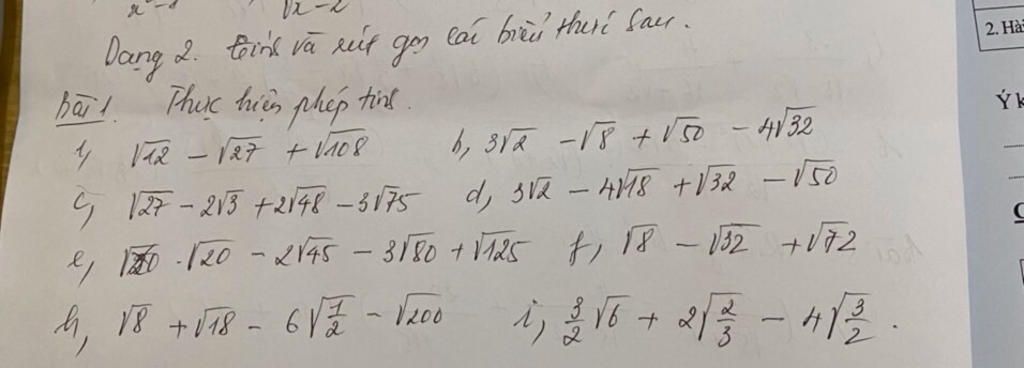 √x-2
Dạng 2. tính và rút gọn các biểu thức sau.
Bài 1. Thực hiện phép tính.
1, √12 - √27 + √108 b, 3√2 - √8 + √50 - 4√32
c, √27 - 2√3 + 2√48 - 3√75 d, 3√2 - 4√18 + √32 - √50
e, √20 - 2√45 - 3√80 + √125 f, √8 - √32 + √72
h, √8 + √18 - 6√1/2 - √200 i, 3/2 √6 + 2√2/3 - 4√3/2.
2. Hà
Ý k